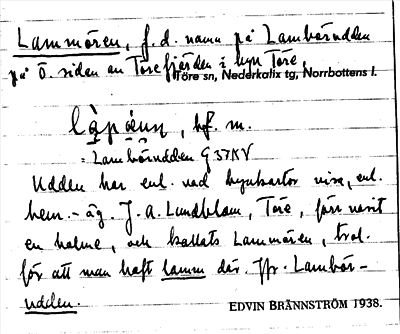 Lammören, f.d. namn på Lambörudden
på ö. sidan av Törefjärden i byn Töre,
Töre sn, Nederkalix tg, Norrbottens l.
, bf. m.
= Lambörudden G 37KV
Udden har enl. vad byakartor visa, enl.
hem.-äg. J. A. Lundblom, Töre, förr varit
en holme, och kallats Lammören, trol.
för att man haft lamm där. Jfr. Lambör-
udden.
EDVIN BRÄNNSTRÖM 1938.